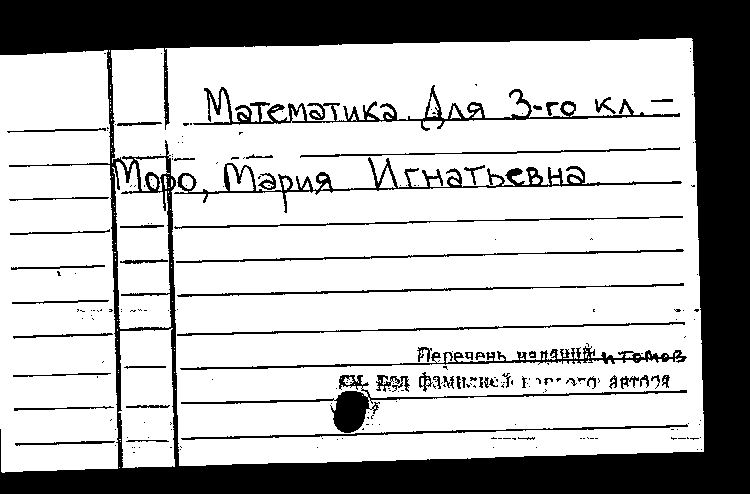 Математика. Для 3-го кл. —
Моро, Мария Игнатьевна
Перечень изданий и томов
см. под фамилией первого автора